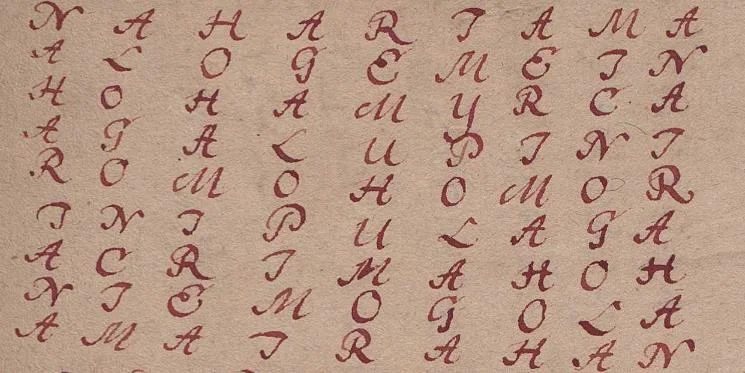 N A H A R I A M A
A L O G E M E I N
H O H A M Y R C A
A G A L U P I N I
R O M O H O M O R
I N I P U L A G A
A C R I M A H O H
N I E M O G O L A
A M A I R A H A N